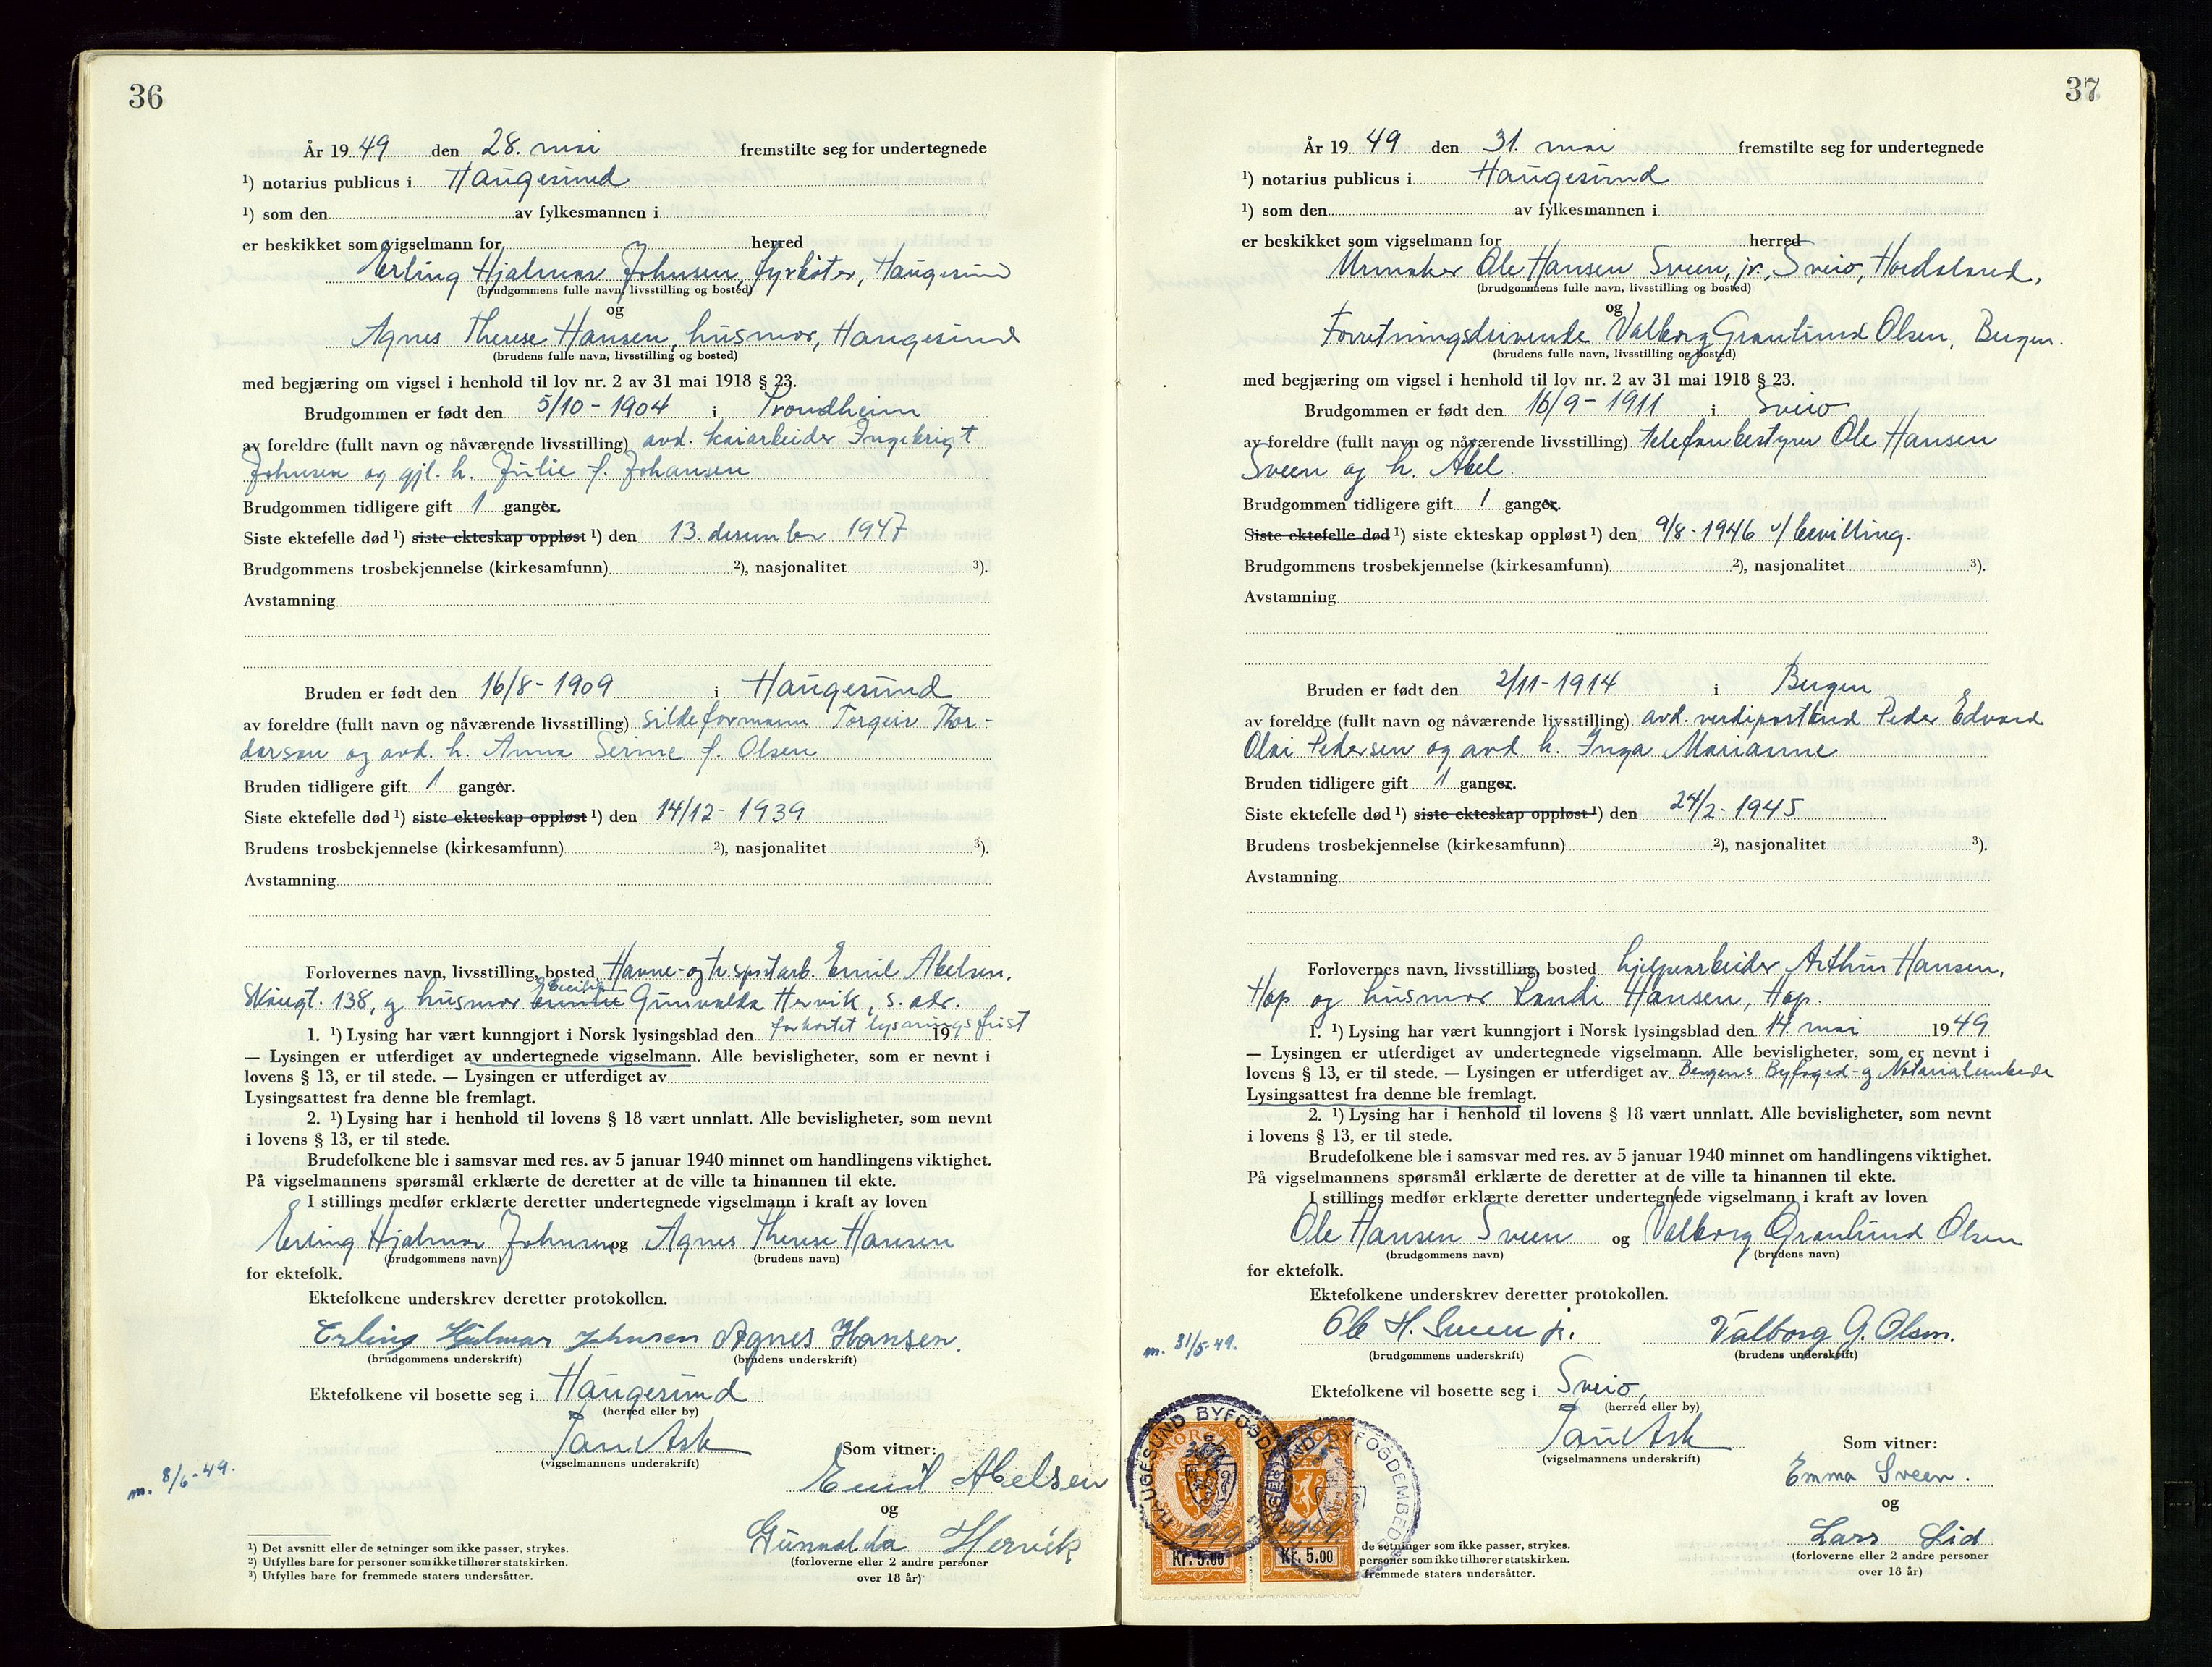 36
År 1949 den 28. mai fremstilte seg for undertegnede
¹) notarius publicus i Haugesund
¹) som den av fylkesmannen i
er beskikket som vigselmann for herred
Erling Hjalmar Johnsen, fyrbøter, Haugesund
(brudgommens fulle navn, livsstilling og bosted)
og
Agnes Therese Hansen, husmor, Haugesund
(brudens fulle navn, livsstilling og bosted)
med begjæring om vigsel i henhold til lov nr. 2 av 31 mai 1918 § 23.
Brudgommen er født den 5/10 - 1904 i Trondheim
av foreldre (fullt navn og nåværende livsstilling) avd. kaiarbeider Ingebrigt
Johnsen og gjl. h. Julie f. Johansen
Brudgommen tidligere gift 1 ganger.
Siste ektefelle død ¹) siste ekteskap oppløst ¹) den 13. desember 1947
Brudgommens trosbekjennelse (kirkesamfunn) ²), nasjonalitet ³).
Avstamning
Bruden er født den 16/8 - 1909 i Haugesund
av foreldre (fullt navn og nåværende livsstilling) sildeformann Torgeir Thor-
darson og avd. h. Anna Serine f. Olsen
Bruden tidligere gift 1 ganger.
Siste ektefelle død ¹) siste ekteskap oppløst ¹) den 14/12 - 1939
Brudens trosbekjennelse (kirkesamfunn) ²), nasjonalitet ³).
Avstamning
Forlovernes navn, livsstilling, bosted Havne- og tr.sportarb. Emil Abelsen,
Skåugt. 138, og husmor Gunvalda Hervik, s. adr.
1. ¹) Lysing har vært kunngjort i Norsk lysingsblad den forkortet lysningsfrist 19
— Lysingen er utferdiget av undertegnede vigselmann. Alle bevisligheter, som er nevnt i
lovens § 13, er til stede. — Lysingen er utferdiget av
Lysingsattest fra denne ble fremlagt.
2. ¹) Lysing har i henhold til lovens § 18 vært unnlatt. Alle bevisligheter, som nevnt
i lovens § 13, er til stede.
Brudefolkene ble i samsvar med res. av 5 januar 1940 minnet om handlingens viktighet.
På vigselmannens spørsmål erklærte de deretter at de ville ta hinannen til ekte.
I stillings medfør erklærte deretter undertegnede vigselmann i kraft av loven
Erling Hjalmar Johnsen og Agnes Therese Hansen
(brudgommens navn) (brudens navn)
for ektefolk.
Ektefolkene underskrev deretter protokollen.
Erling Hjalmar Johnsen Agnes Hansen.
(brudgommens underskrift) (brudens underskrift)
Ektefolkene vil bosette seg i Haugesund
(herred eller by)
Paul Ask
(vigselmannens underskrift)
Som vitner:
m. 8/6-49.
Emil Abelsen
og
Gunvalda Hervik
(forloverne eller 2 andre personer
over 18 år)
¹) Det avsnitt eller de setninger som ikke passer, strykes.
²) Utfylles bare for personer som ikke tilhører statskirken.
³) Utfylles bare for fremmede staters undersåtter.
37
År 1949 den 31. mai fremstilte seg for undertegnede
¹) notarius publicus i Haugesund
¹) som den av fylkesmannen i
er beskikket som vigselmann for herred
Urmaker Ole Hansen Sveen, jr., Sveio, Hordaland,
(brudgommens fulle navn, livsstilling og bosted)
og
Forretningsdrivende Valborg Grønlund Olsen, Bergen.
(brudens fulle navn, livsstilling og bosted)
med begjæring om vigsel i henhold til lov nr. 2 av 31 mai 1918 § 23.
Brudgommen er født den 16/9 - 1911 i Sveio
av foreldre (fullt navn og nåværende livsstilling) telefonbestyrer Ole Hansen
Sveen og h. Abel.
Brudgommen tidligere gift 1 ganger.
Siste ektefelle død ¹) siste ekteskap oppløst ¹) den 9/8 - 1946 v/ bevilling.
Brudgommens trosbekjennelse (kirkesamfunn) ²), nasjonalitet ³).
Avstamning
Bruden er født den 2/11 - 1914 i Bergen
av foreldre (fullt navn og nåværende livsstilling) avd. verdipostbud Peder Edvard
Olai Pedersen og avd. h. Inga Marianne
Bruden tidligere gift 1 ganger.
Siste ektefelle død ¹) siste ekteskap oppløst ¹) den 24/2 - 1945
Brudens trosbekjennelse (kirkesamfunn) ²), nasjonalitet ³).
Avstamning
Forlovernes navn, livsstilling, bosted hjelpearbeider Arthur Hansen,
Hop og husmor Randi Hansen, Hop.
1. ¹) Lysing har vært kunngjort i Norsk lysingsblad den 14. mai 1949
— Lysingen er utferdiget av undertegnede vigselmann. Alle bevisligheter, som er nevnt i
lovens § 13, er til stede. — Lysingen er utferdiget av Bergens Byfoged- og Notarialembede
Lysingsattest fra denne ble fremlagt.
2. ¹) Lysing har i henhold til lovens § 18 vært unnlatt. Alle bevisligheter, som nevnt
i lovens § 13, er til stede.
Brudefolkene ble i samsvar med res. av 5 januar 1940 minnet om handlingens viktighet.
På vigselmannens spørsmål erklærte de deretter at de ville ta hinannen til ekte.
I stillings medfør erklærte deretter undertegnede vigselmann i kraft av loven
Ole Hansen Sveen og Valborg Grønlund Olsen
(brudgommens navn) (brudens navn)
for ektefolk.
Ektefolkene underskrev deretter protokollen.
m. 31/5-49.
Ole H. Sveen jr. Valborg G. Olsen.
(brudgommens underskrift) (brudens underskrift)
Ektefolkene vil bosette seg i Sveio,
(herred eller by)
Paul Ask
(vigselmannens underskrift)
Som vitner:
Emma Sveen.
og
Lars Lid
(forloverne eller 2 andre personer
over 18 år)
HAUGESUND BYFOGDEMBEDE
NORGE
1949
Kr. 5.00
Kr. 5.00
de setninger som ikke passer, strykes.
personer som ikke tilhører statskirken.
fremmede staters undersåtter.